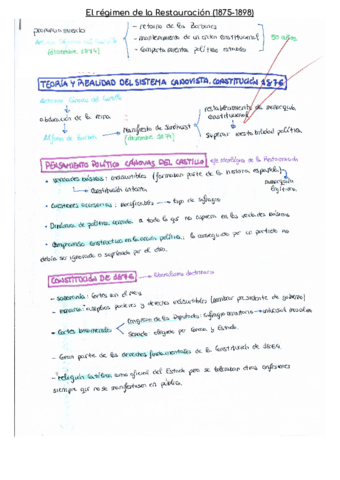 El régimen de la Restauración (1875-1898)
pronunciamiento
- retorno de los Borbones
- mantenimiento de un orden constitucional
- comportamiento político estable
50 años
(diciembre 1874)
TEORÍA Y REALIDAD DEL SISTEMA CANOVISTA. CONSTITUCIÓN 1876
Antonio Cánovas del Castillo
abdicación de la reina
Alfonso de Borbón
Manifiesto de Sandhurst
(diciembre 1874)
restablecimiento de monarquía
constitucional
superar inestabilidad política
PENSAMIENTO POLÍTICO CÁNOVAS DEL CASTILLO
de la Restauración
• verdades básicas: indiscutibles (formaban parte de la historia española)
Constitución interna
monarquía
legítima
• Cuestiones accesorias: modificables
tipo de sufragio
a todo lo que no suponía en las verdades básicas
lo conseguido por un partido no
debía ser ignorado o suprimido por el otro.
CONSTITUCIÓN DE 1876
liberalismo doctrinario
- soberanía: Cortes con el rey
- poderes y derechos indiscutibles (nombrar presidente de gobierno)
- Cortes bicamerales
Congreso de los Diputados: sufragio censitario
universal masculino
Senado elegido por Corona y Estado.
- Gran parte de los derechos fundamentales de la Constitución de 1869.
- religión católica como oficial del Estado pero se toleraban otras confesiones
siempre que no se manifestasen en público.